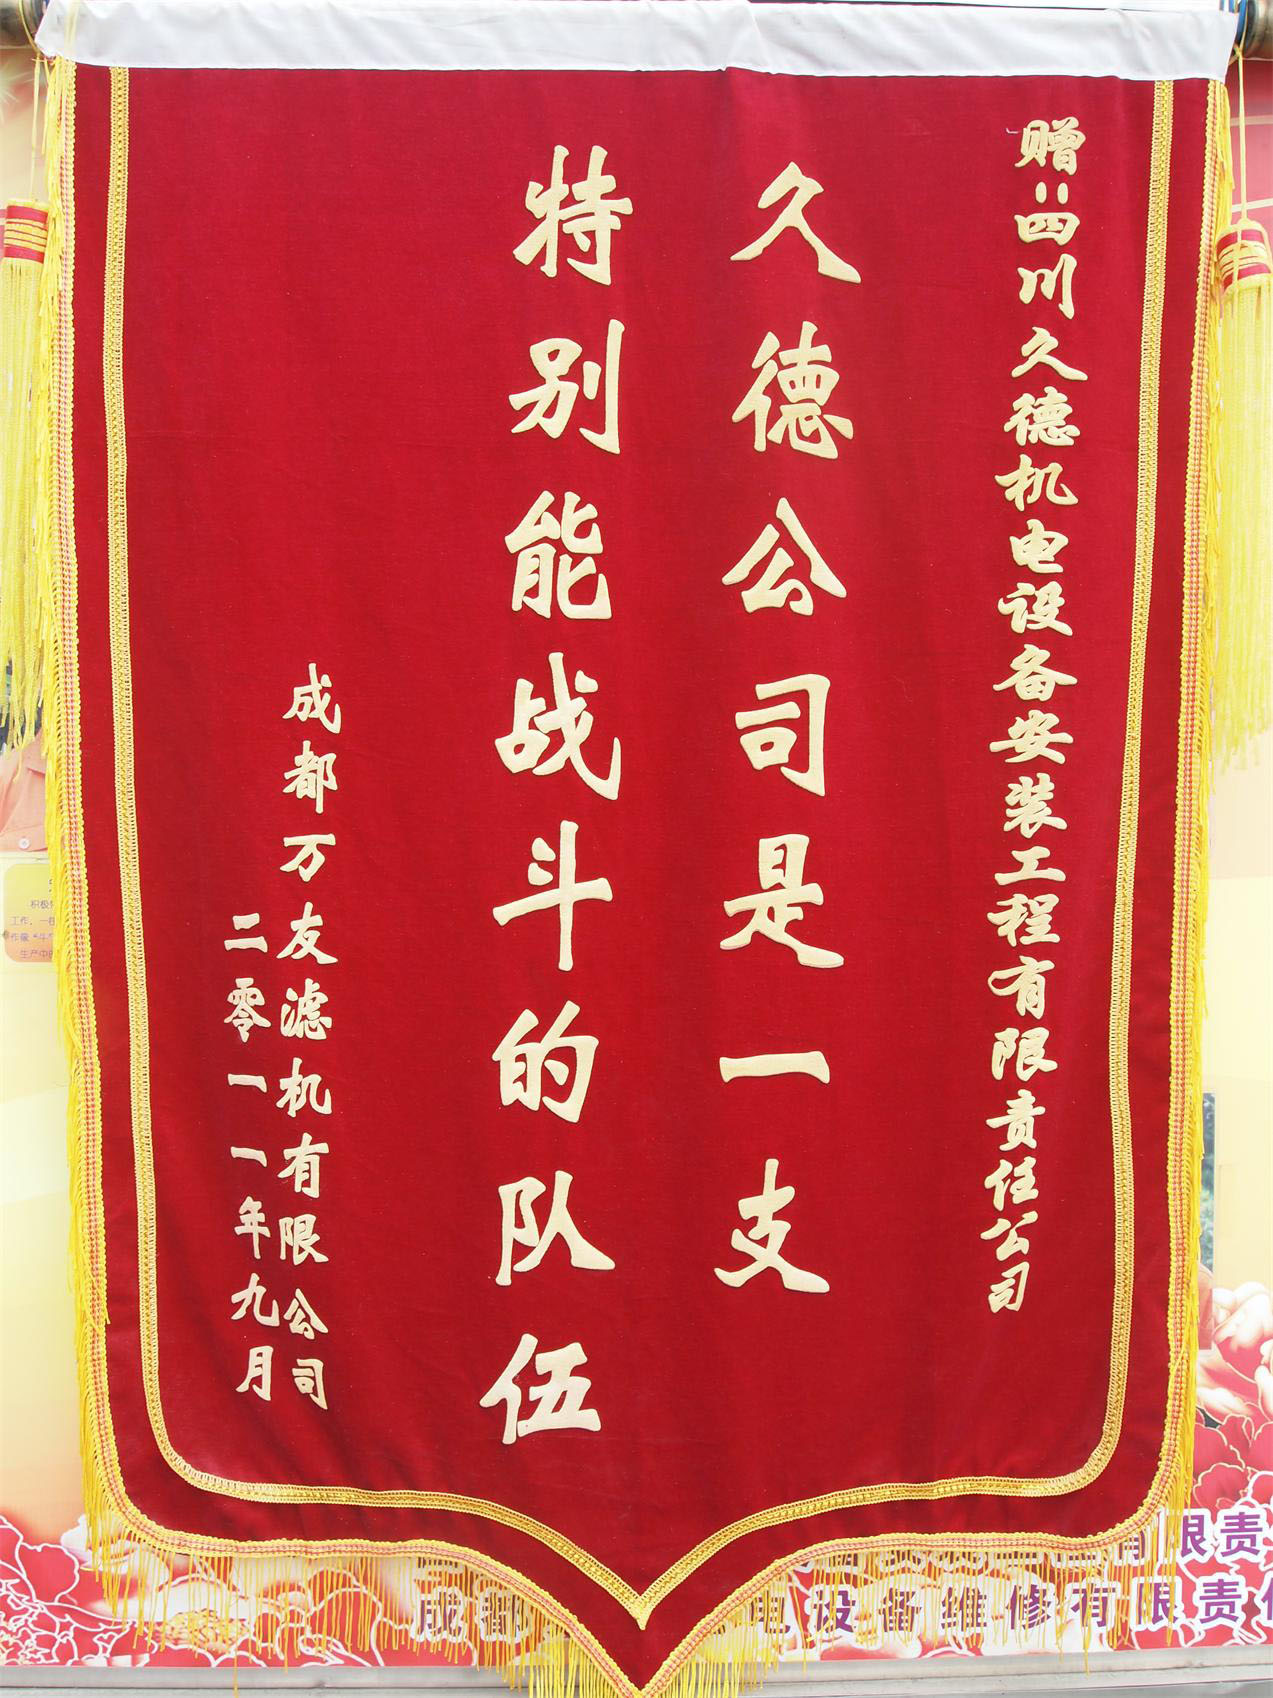 赠:四川久德机电设备安装工程有限责任公司
久德公司是一支
特别能战斗的队伍
成都万友滤机有限公司
二零一一年九月
积极
工作,一
作像“斗
生产中
有限责
成都
电设备维修有限责任